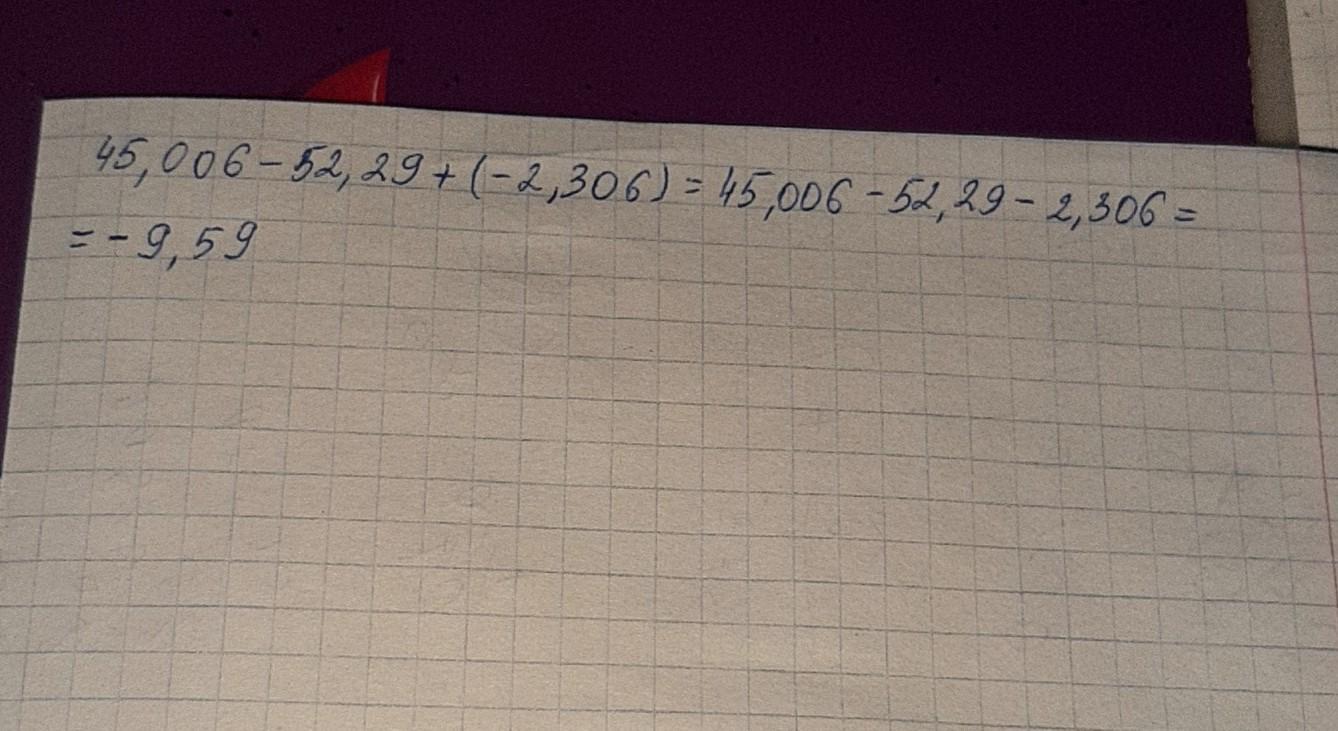 45,006-52,29+(-2,306)=45,006-52,29-2,306=
=-9,59